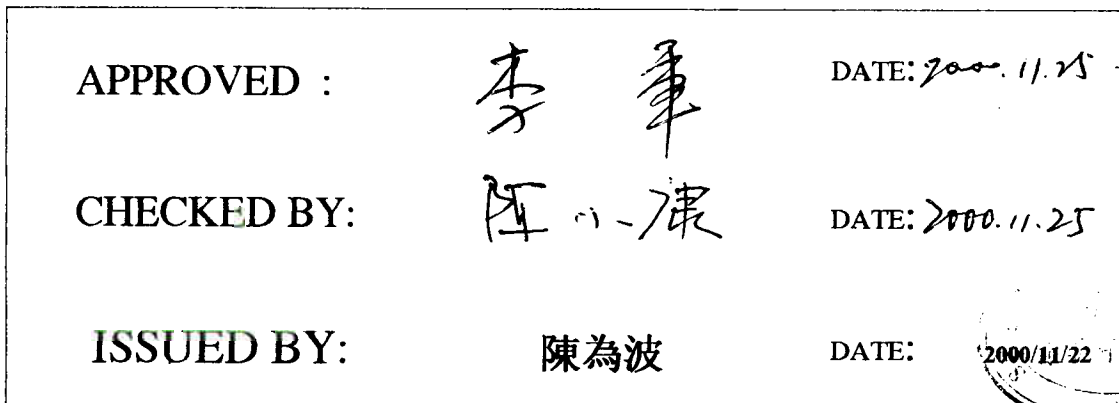 APPROVED : 李 軍 DATE: 2000.11.25
CHECKED BY: 陈小康 DATE: 2000.11.25
ISSUED BY: 陳為波 DATE: 2000/11/22